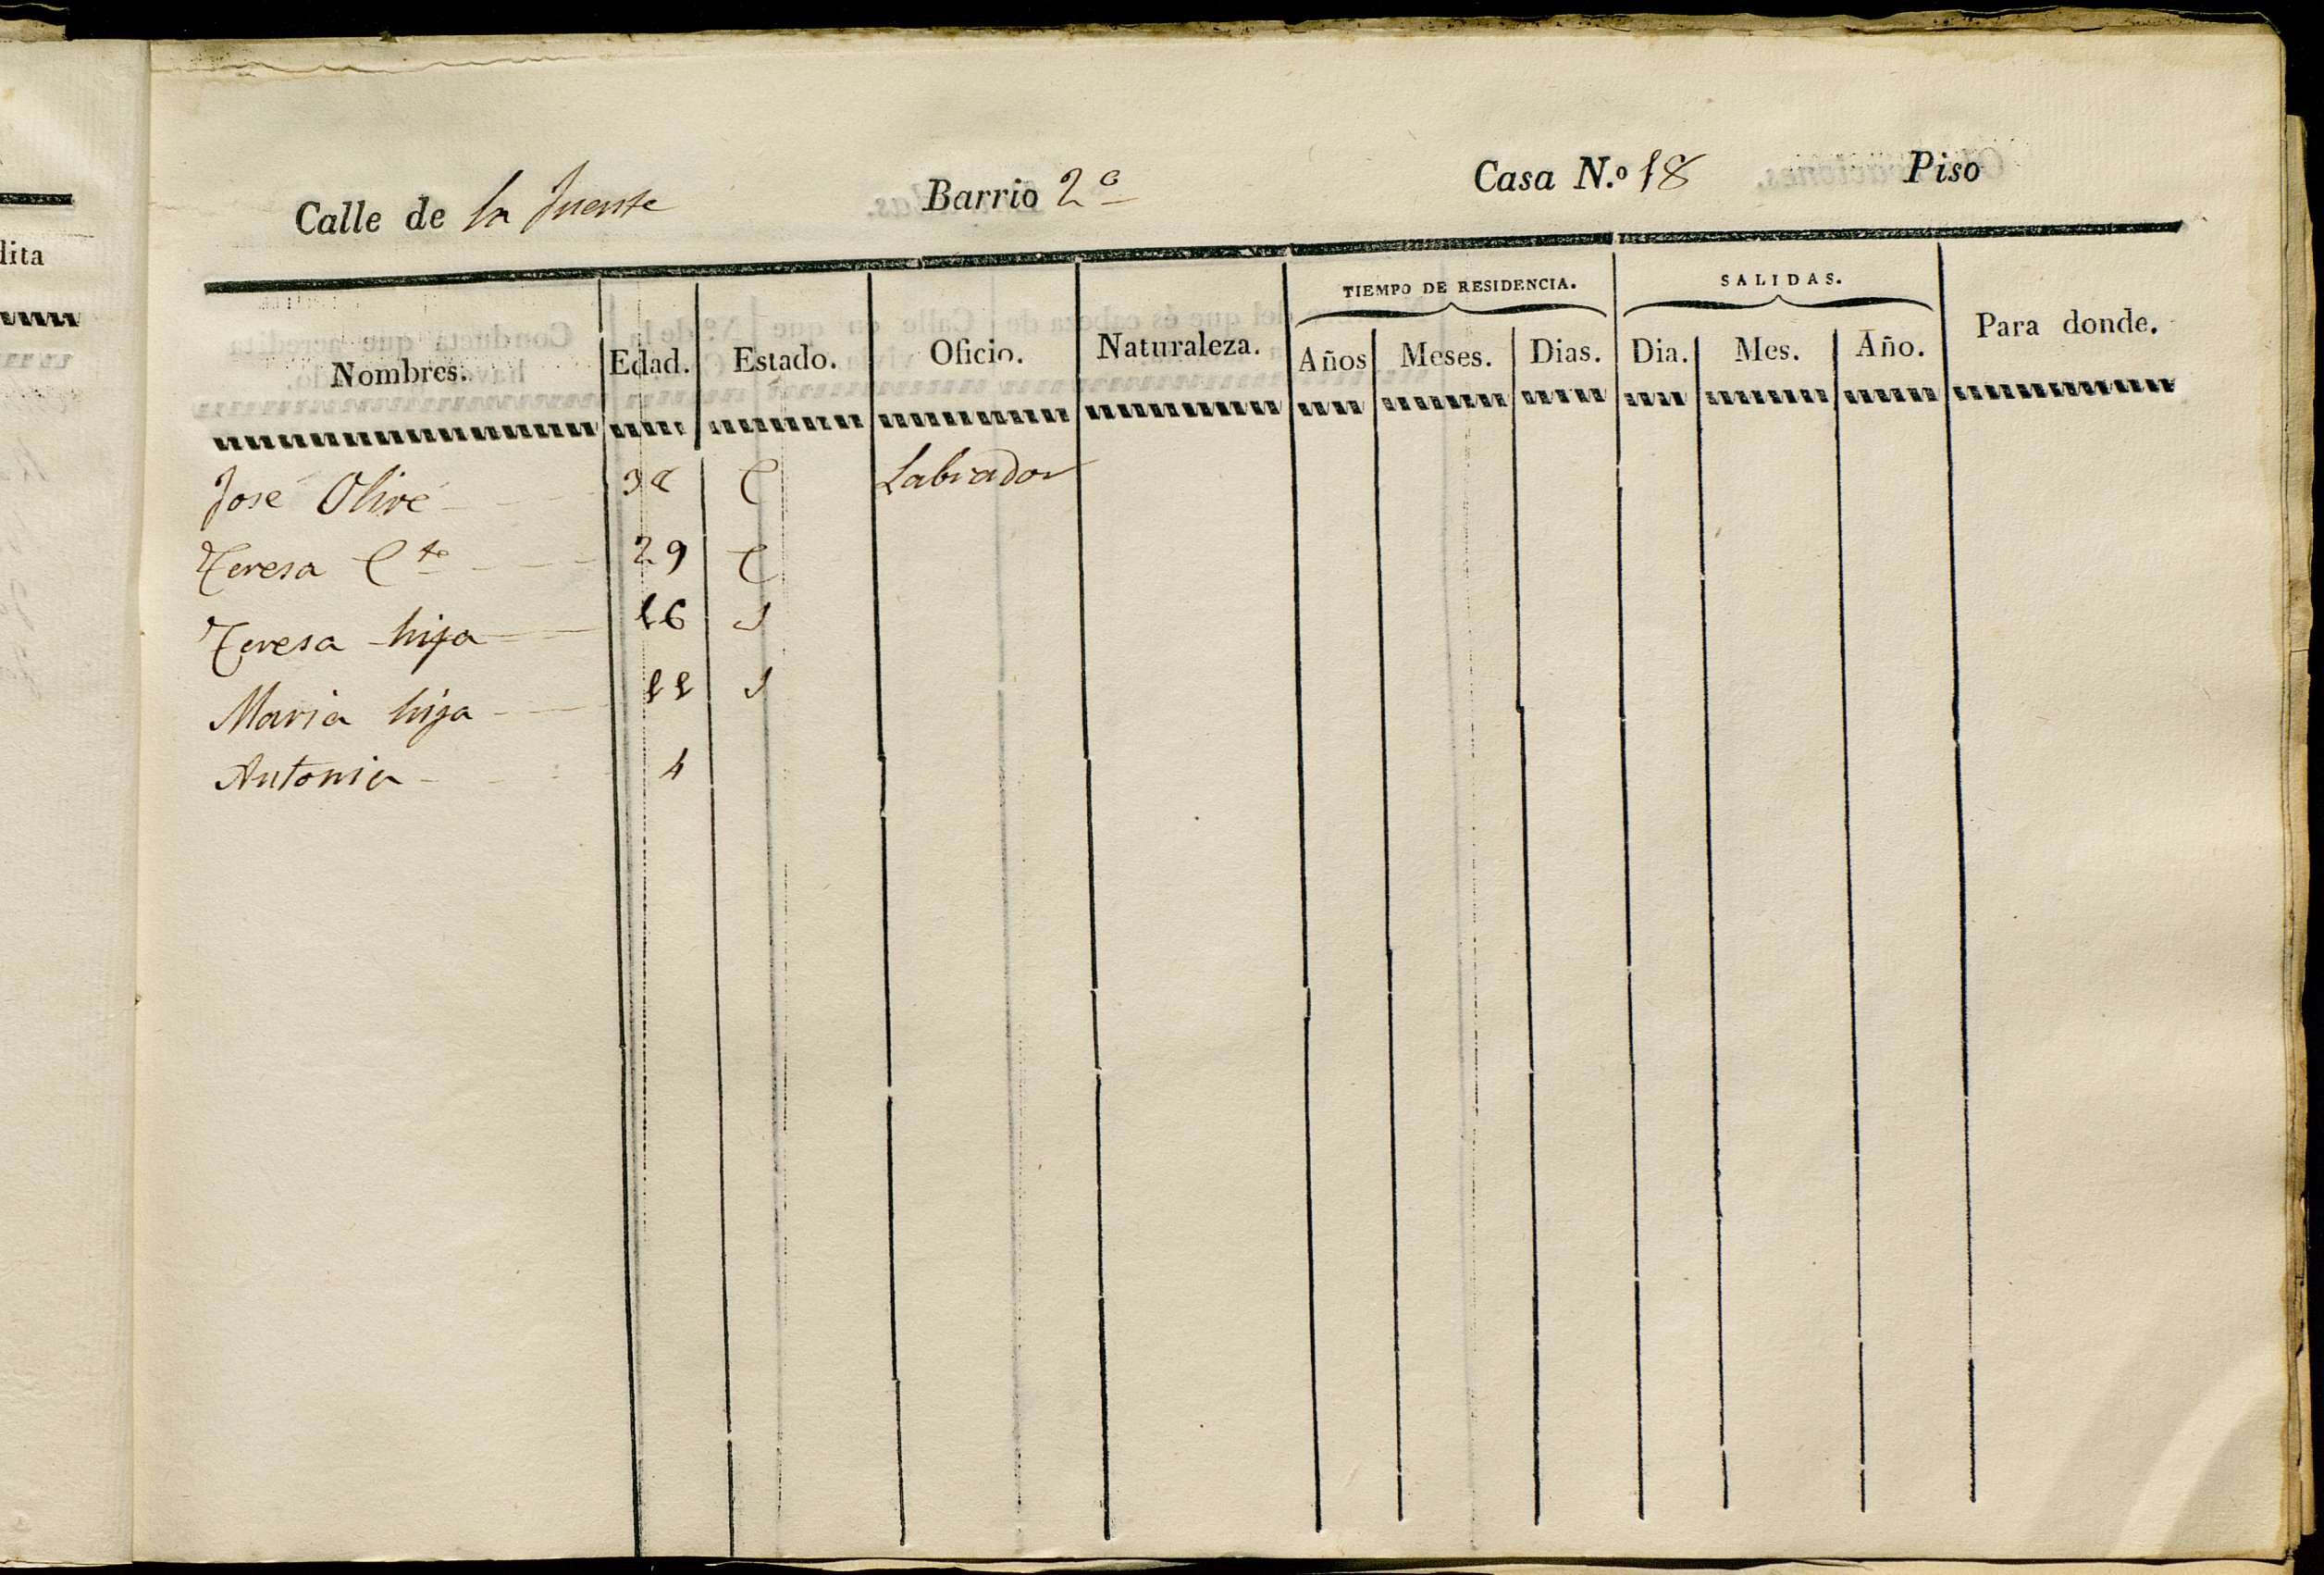 dita
Calle de la Fuente Barrio 2º Casa N.º 18 Piso
TIEMPO DE RESIDENCIA. SALIDAS.
Nombres. Edad. Estado. Oficio. Naturaleza. Años Meses. Dias. Dia. Mes. Año. Para donde.
José Olivé 38 C Labrador
Teresa Cte 29 C
Teresa hija 16 S
Maria hija 11 S
Antonia 4